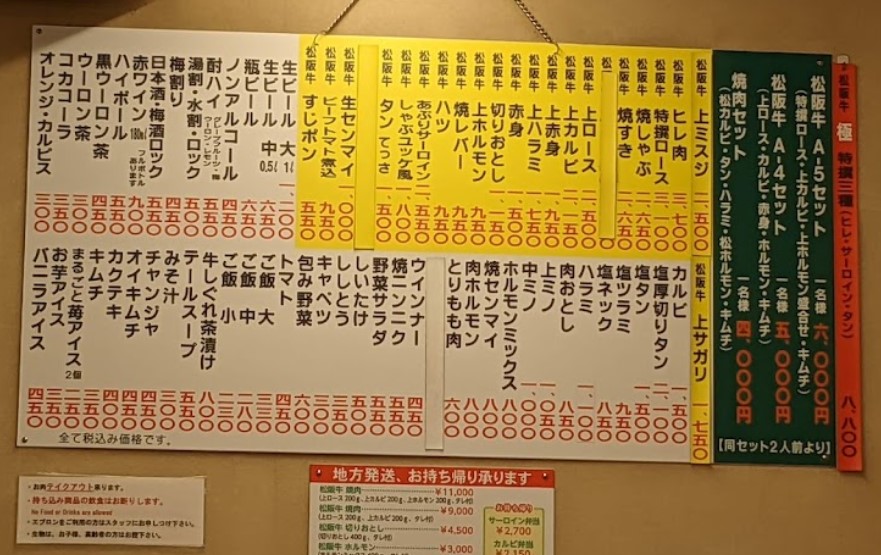 松阪牛 極 特撰三種(ヒレ・サーロイン・タン) 八、八〇〇
松阪牛 A-5セット 一名様 六、〇〇〇円
(特撰ロース・上カルビ・上ホルモン盛合せ・キムチ)
松阪牛 A-4セット 一名様 五、〇〇〇円
(上ロース・カルビ・赤身・ホルモン・キムチ)
焼肉セット 一名様 四、〇〇〇円
(松カルビ・タン・ハラミ・松ホルモン・キムチ)
【同セット2人前より】
松阪牛 上ミスジ
松阪牛 ヒレ肉
松阪牛 特撰ロース
松阪牛 焼しゃぶ
松阪牛 焼すき
松阪牛 上ロース
松阪牛 上カルビ
松阪牛 上赤身
松阪牛 上ハラミ
松阪牛 赤身
松阪牛 切りおとし
松阪牛 上ホルモン
松阪牛 焼レバー 九五〇
松阪牛 ハツ 九五〇
松阪牛 あぶりサーロイン
松阪牛 しゃぶユッケ風
松阪牛 タン てっさ
松阪牛 生センマイ 一、〇〇〇
松阪牛 ビーフトマト煮込 九五〇
松阪牛 すじポン 九五〇
生ビール 大 1ℓ 一、二〇〇
生ビール 中 0.5ℓ 六五〇
瓶ビール 六五〇
ノンアルコール 四五〇
酎ハイ グレープフルーツ・梅 ウーロン・レモン 五五〇
湯割・水割・ロック 五五〇
梅割り
日本酒・梅酒ロック 五五〇
赤ワイン 180㎖ フルボトルあります 九〇〇
ハイボール 五五〇
黒ウーロン茶 四五〇
ウーロン茶 三五〇
コカコーラ 三五〇
オレンジ・カルピス 三〇〇
松阪牛 上サガリ 一、七五〇
カルビ 一、五〇〇
塩厚切りタン 二、一〇〇
塩タン 一、六〇〇
塩ツラミ 九五〇
塩ネック 八五〇
ハラミ
肉おとし 八五〇
上ミノ
中ミノ
ホルモンミックス
焼センマイ 八〇〇
肉ホルモン 八〇〇
とりもも肉 六〇〇
ウインナー 四五〇
焼ニンニク 五五〇
野菜サラダ 五五〇
しいたけ
ししとう
キャベツ
包み野菜
トマト
ご飯 大
ご飯 中
ご飯 小
牛しぐれ茶漬け 八〇〇
テールスープ 五五〇
みそ汁
チャンジャ
オイキムチ
カクテキ
キムチ
まるごと苺アイス 2個
お芋アイス
バニラアイス
全て税込み価格です。
・お肉テイクアウト承ります。
・持ち込み商品の飲食はお断りします。
No Food or Drinks are allowed
・エプロンをご利用の方はスタッフにお申しつけ下さい。
・生物は、お子様、高齢者の方はお控え下さい。
地方発送、お持ち帰り承ります
松阪牛 焼肉 ¥11,000
(上ロース 200g、上カルビ 200g、上ホルモン 200g、タレ付)
松阪牛 焼肉 ¥9,000
(上ロース 200g、上カルビ 200g、タレ付)
松阪牛 切りおとし ¥4,500
(切りおとし 400g、タレ付)
松阪牛 ホルモン ¥3,000
お持ち帰り
サーロイン弁当
¥2,700
カルビ弁当
¥2,150